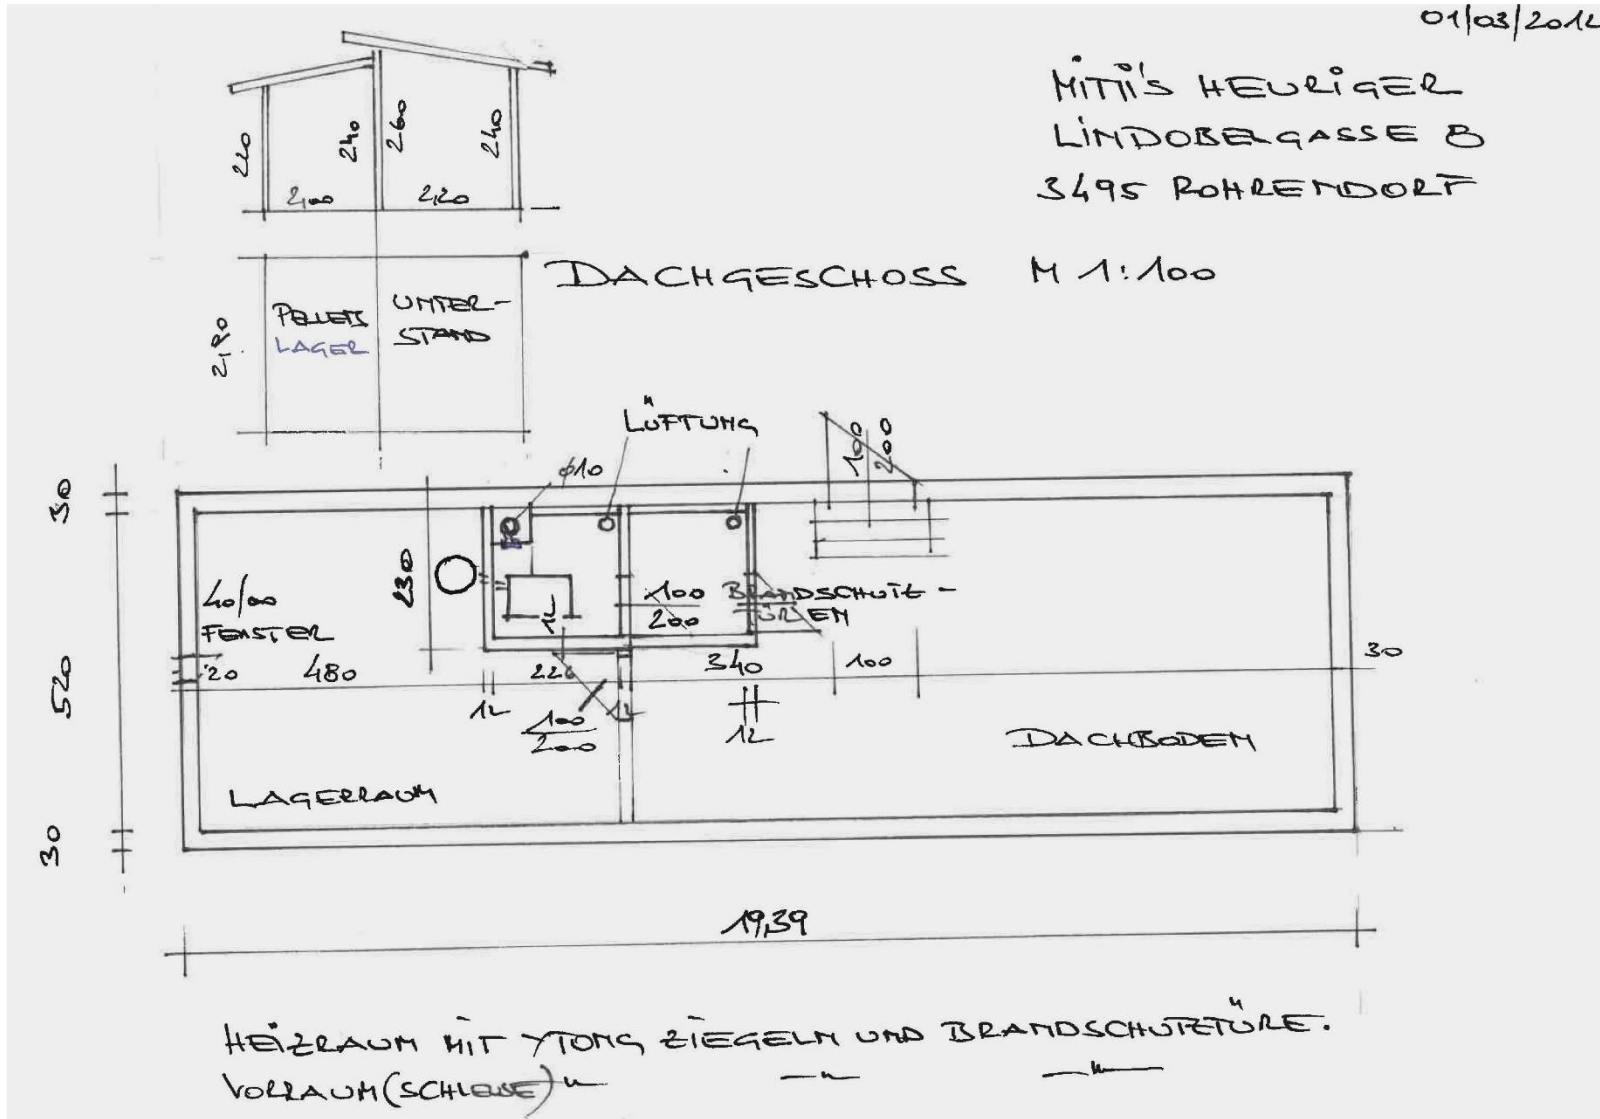 01/03/2012
MITTI'S HEURIGER
LINDOBELGASSE 8
3495 ROHRENDORF
220
240
260
240
2,00
2,20
DACHGESCHOSS M 1:100
PELLETS
LAGER
UNTER-
STAND
2,80
LÜFTUNG
ϕ10
100
200
30
520
30
230
40/00
FENSTER
12
100
200
BRANDSCHUTZ-
TÜREN
20
480
226
340
100
30
12
12
12
100
200
LAGERRAUM
DACHBODEN
19,39
HEIZRAUM MIT YTONG ZIEGELN UND BRANDSCHUTZTÜRE.
VORRAUM (SCHLEUSE) —"— —"— —"—